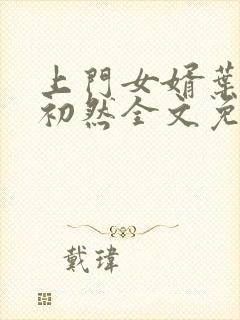 上門女婿葉
初然全文免
戴瑋